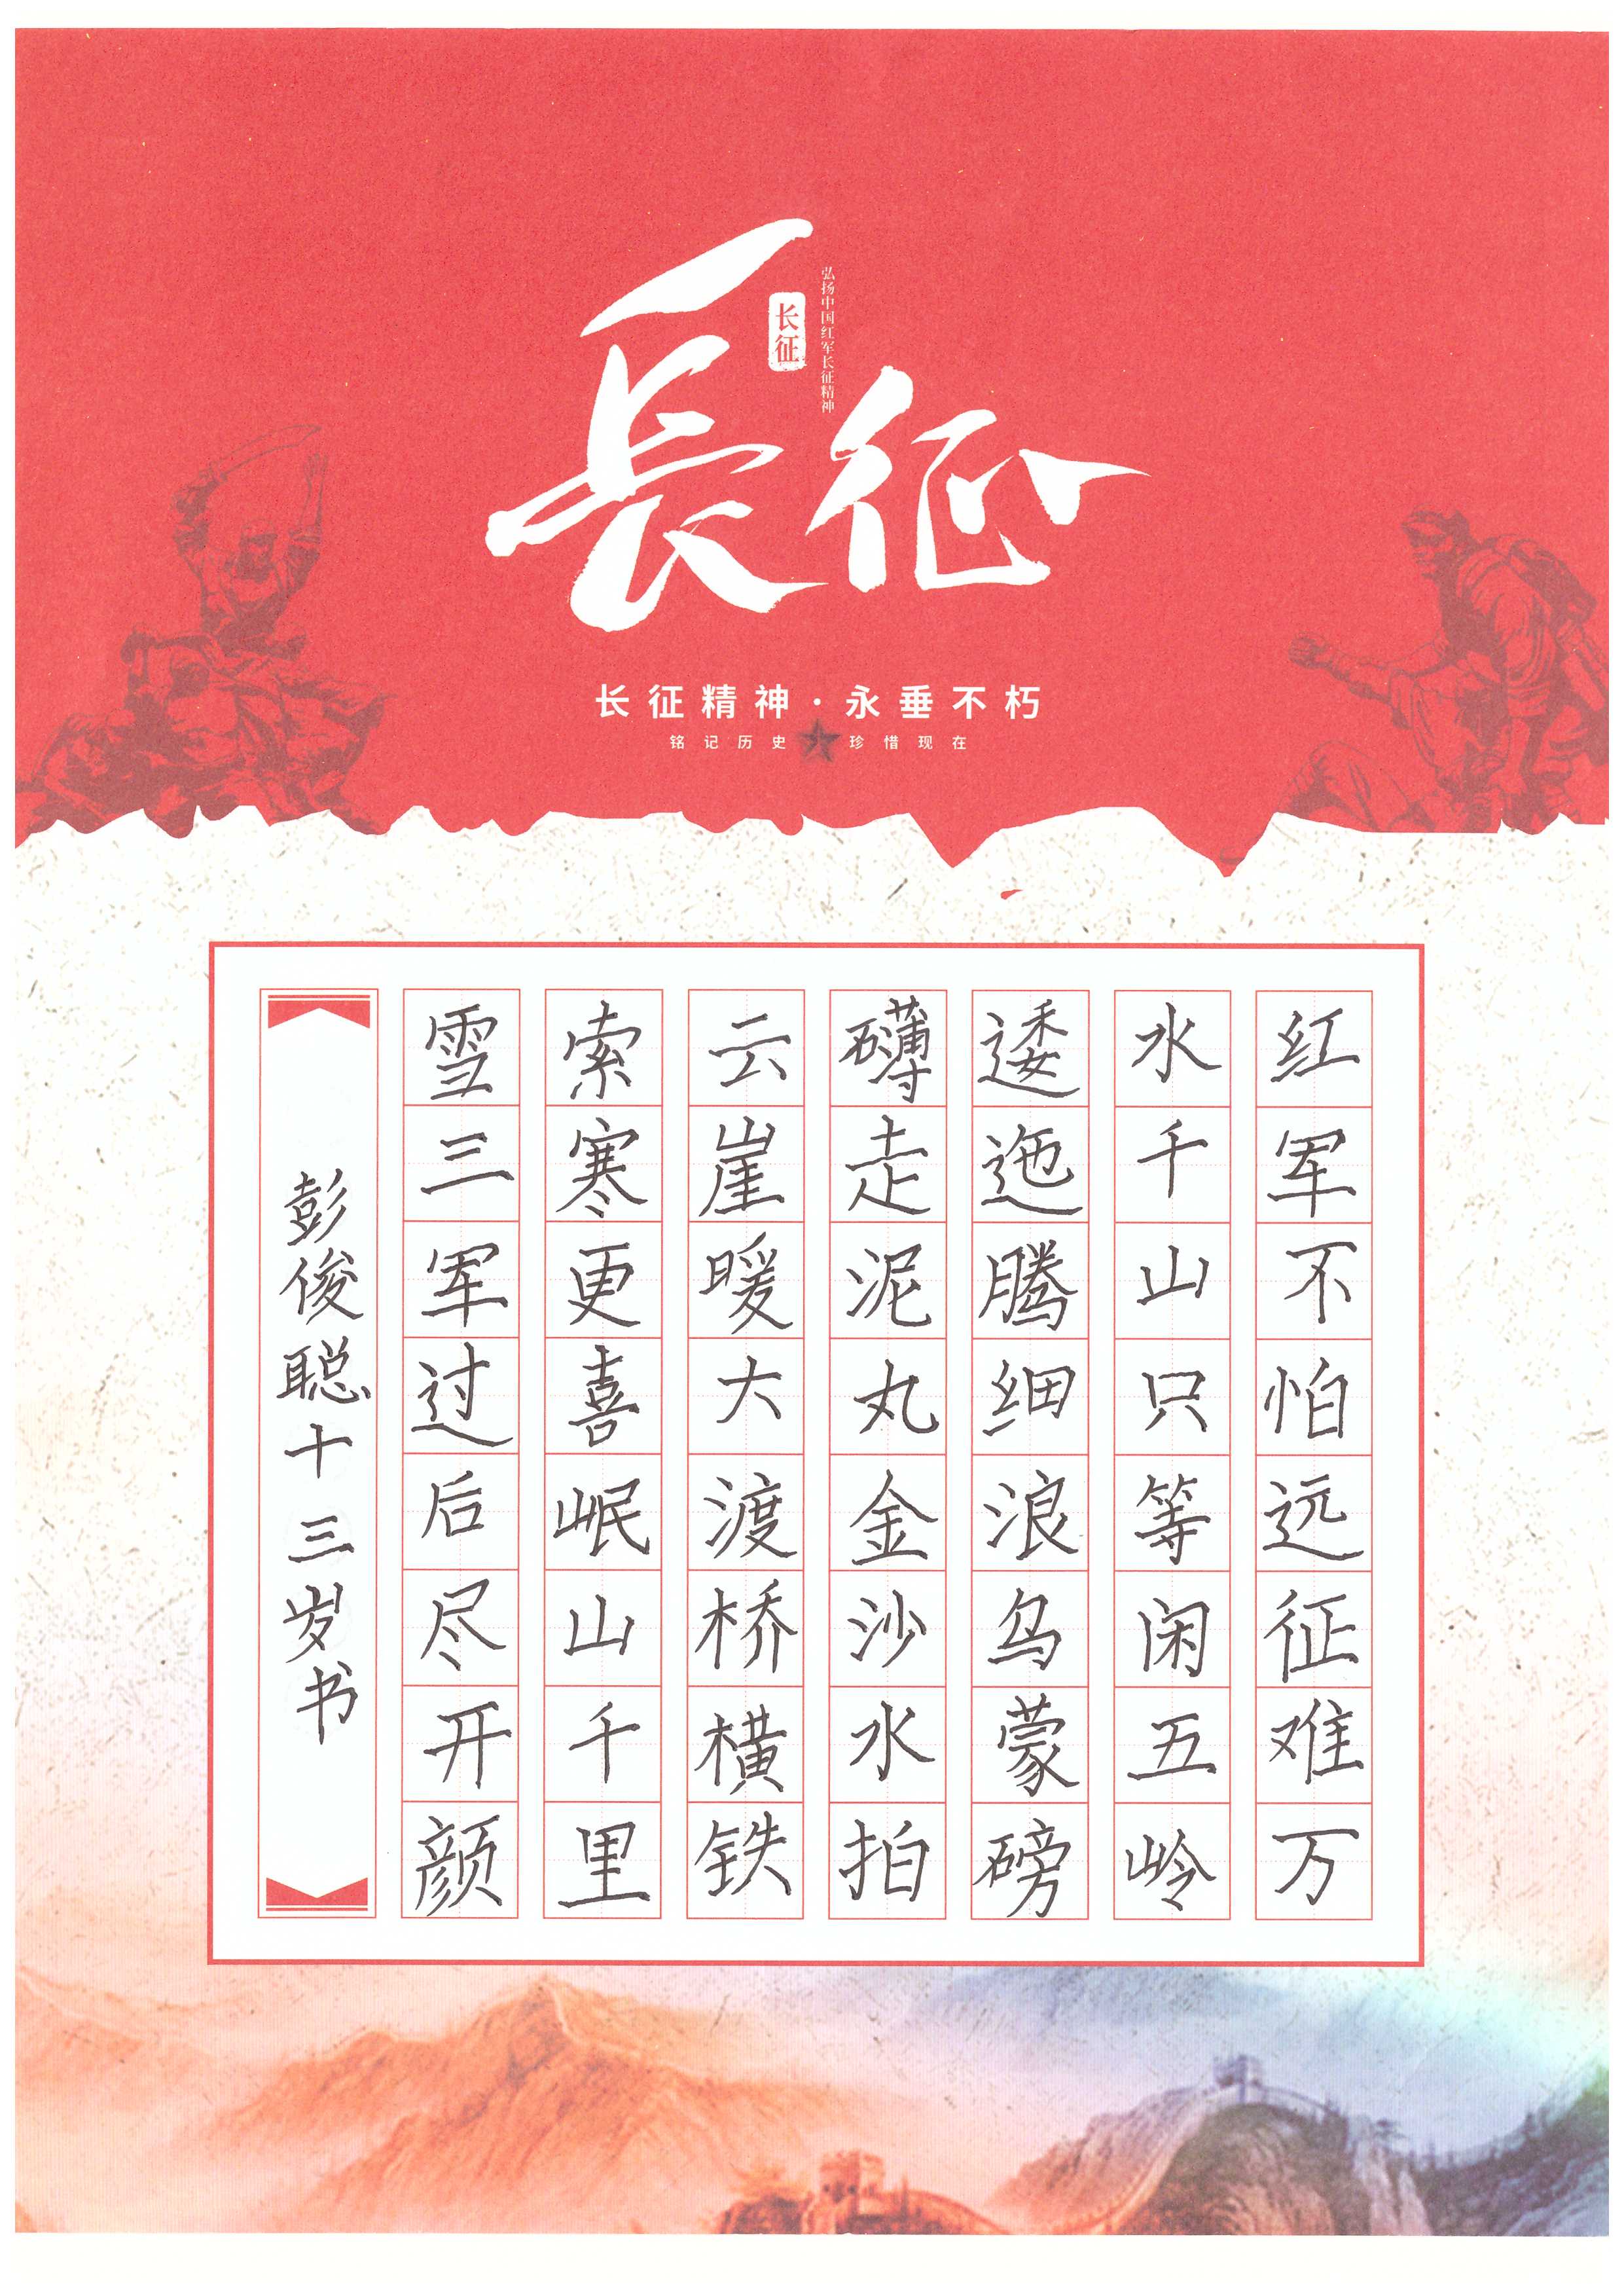 長征
长征
弘扬中国红军长征精神
长征精神·永垂不朽
铭记历史 珍惜现在
红军不怕远征难万
水千山只等闲五岭
逶迤腾细浪乌蒙磅
礴走泥丸金沙水拍
云崖暖大渡桥横铁
索寒更喜岷山千里
雪三军过后尽开颜
彭俊聪十三岁书